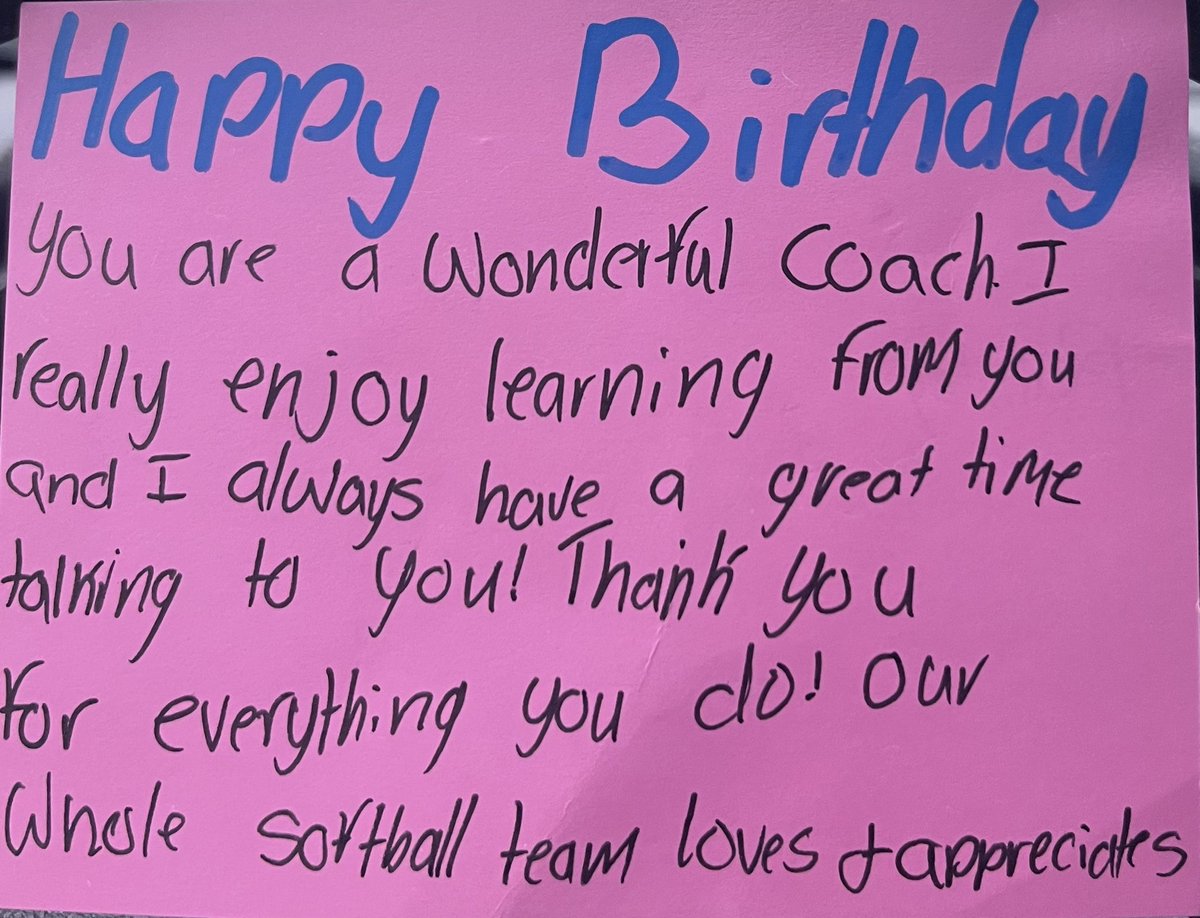 Happy Birthday
you are a wonderful coach. I
really enjoy learning from you
and I always have a great time
talking to you! Thank you
for everything you do! our
whole softball team loves + appreciates